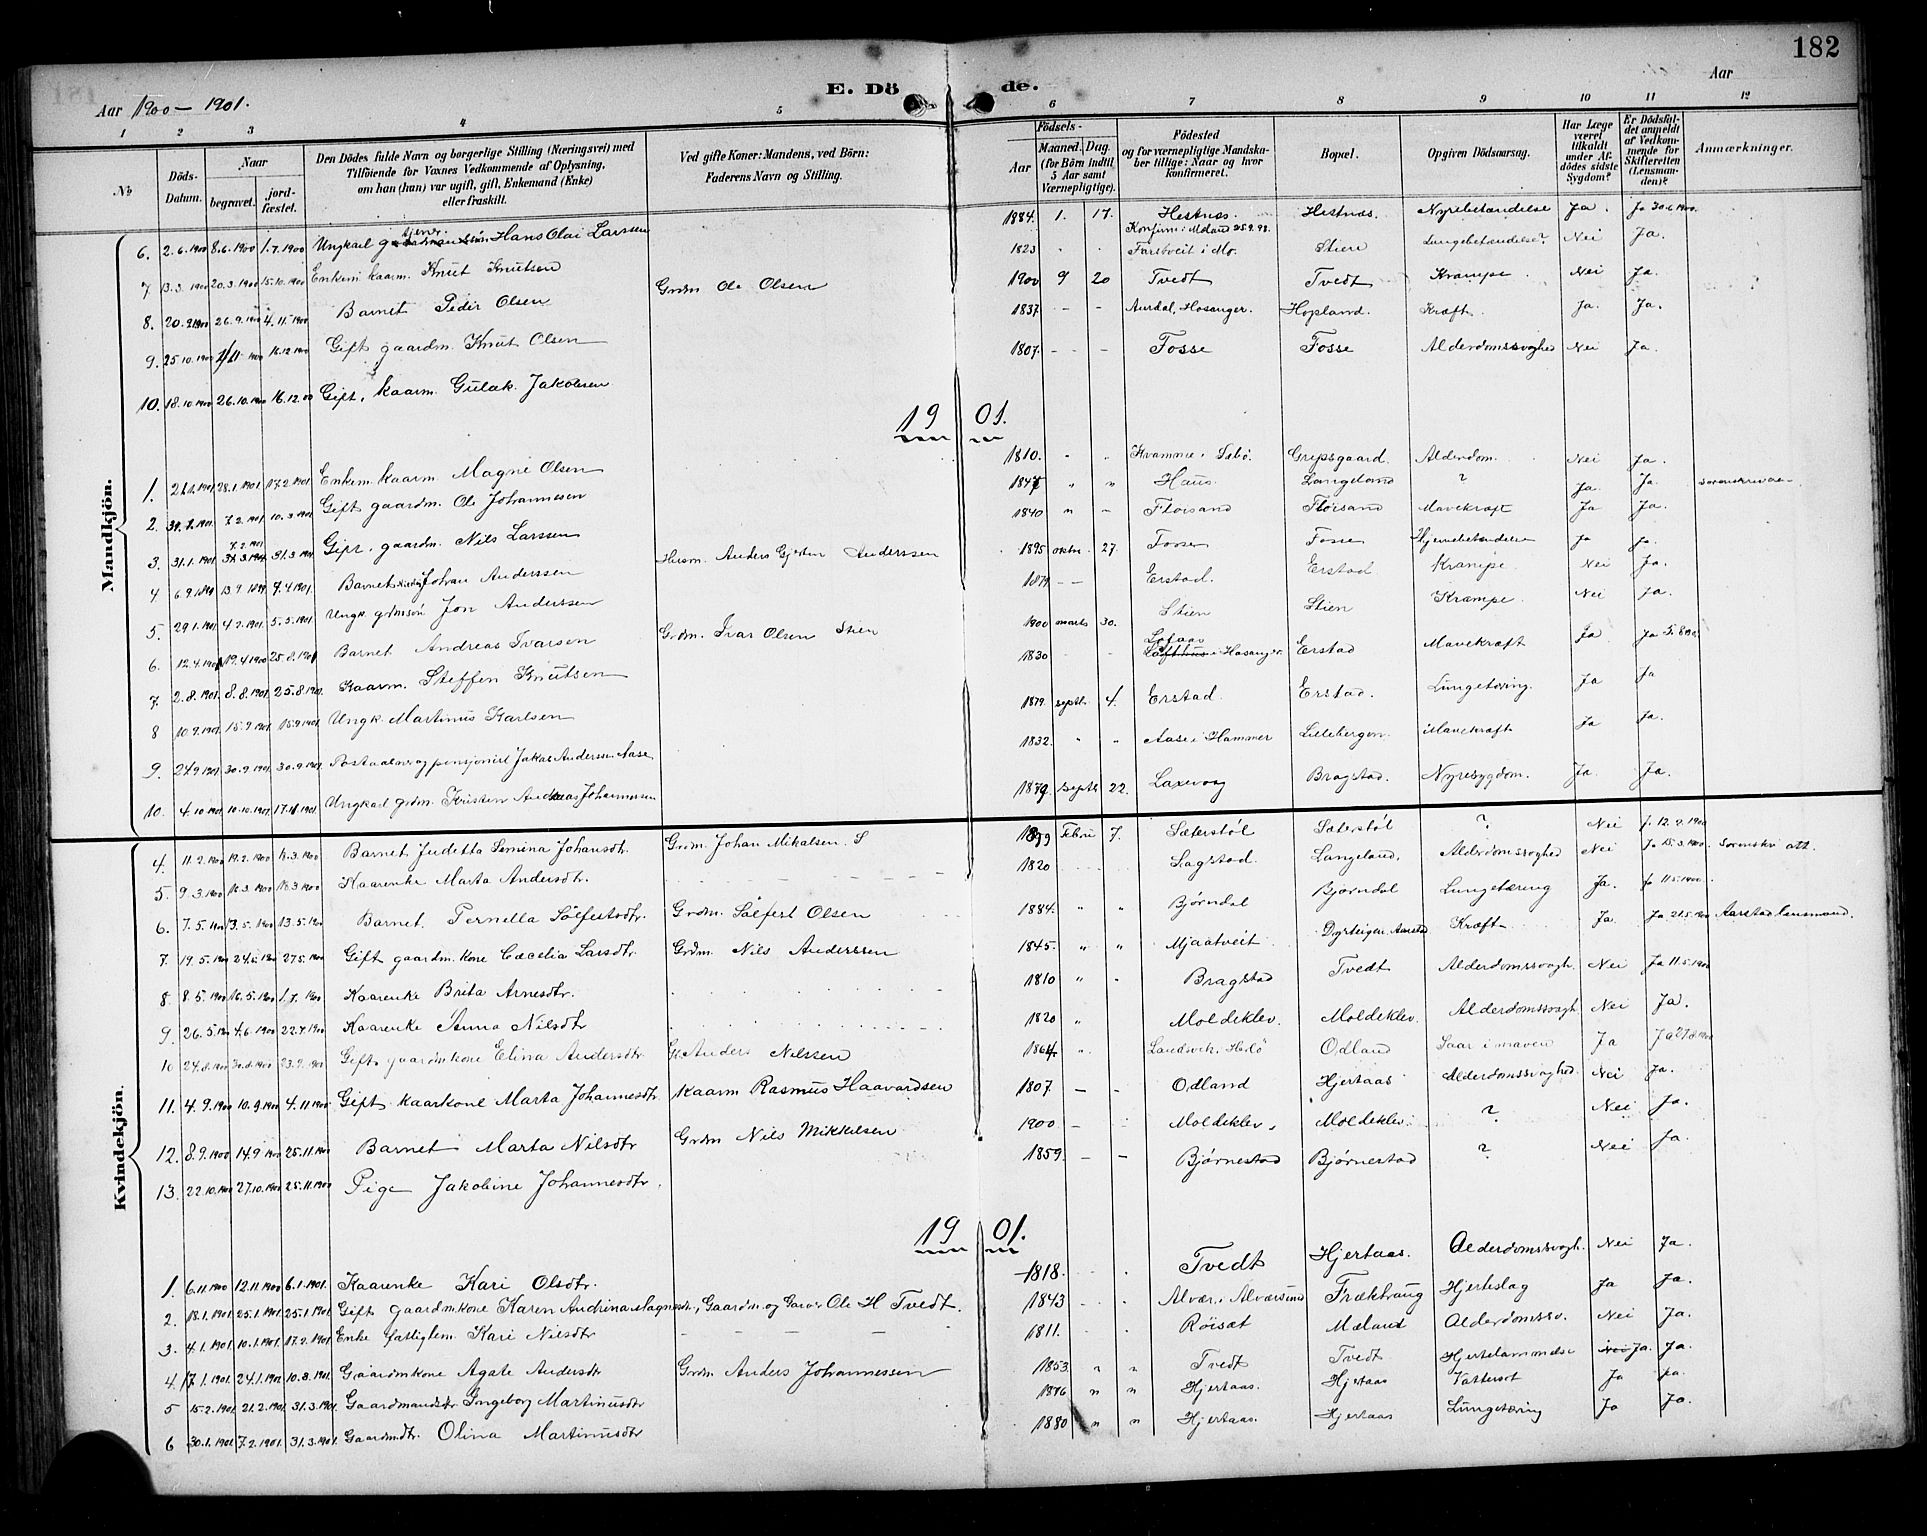 182
Aar 1900 — 1901.
E. Dö de.
Aar
1 2 3 4 5 6 7 8 9 10 11 12
No
Döds-Datum.
Naar
begravet.
jord-fæstet.
Den Dödes fulde Navn og borgerlige Stilling (Næringsvei) med Tilföiende for Voxnes Vedkommende af Oplysning, om han (hun) var ugift, gift, Enkemand (Enke) eller fraskilt.
Ved gifte Koner: Mandens, ved Börn: Faderens Navn og Stilling.
Födsels-
Aar
Maaned. Dag.
(for Börn indtil 5 Aar samt Værnepligtige).
Födested og for værnepligtige Mandskaber tillige: Naar og hvor konfirmeret.
Bopæl.
Opgiven Dödsaarsag.
Har Læge været tilkaldt under Afdödes sidste Sygdom?
Er Dödsfaldet anmeldt af Vedkommende for Skifteretten (Lensmanden)?
Anmærkninger.
Mandkjön.
6. 2.6.1900 8.6.1900 1.7.1900 Ungkarl tjener Hans Olai Larssen 1884. 1. 17. Hestnæs. Konfirm. i Meland 25.9.98. Hestnæs. Nyrebetændelse Ja. Ja 30.6.1900.
7 13.3.1900 20.3.1900 15.10.1900 Enkem. kaarm. Knut Knutsen 1823 Farstveit i Mo. Stien Lungebetændelse? Nei Ja.
8. 20.9.1900 26.9.1900 4.11.1900 Barnet Peder Olsen Grdm Ole Olsen 1900 9 20 Tvedt Tvedt Krampe Nei Ja.
9. 25.10.1900 1900 16.12.1900 Gift gaardm. Knut Olsen 1837 - - Aurdal, Hosanger. Hopland. Kræft Ja. Ja.
10. 18.10.1900 26.10.1900 16.12.00 Gift, kaarm. Gulak Jakobsen 1807. - - Fosse Fosse Alderdomssvaghed Nei Ja.
19 01.
1. 21.1.1901 28.1.1901 17.2.1901 Enkem. kaarm Magne Olsen 1810. Kvamme i Sæbø. Gripsgaard. Alderdom. Nei Ja.
2. 7.2.1901 10.3.1901 Gift gaardm. Ole Johannesen 1847 " " Haus Langeland ? Ja. Ja.
3. 31.1.1901 7.2.1901 31.3.1901 Gift. gaardm. Nils Larssen 1840 " " Floisand Floisand Mavekræft Ja Ja.
4 6.9.1899 13.9.1899 7.4.1901. Barnet Johan Anderssen Anders Gjertin Anderssen 1895 oktbr. 27. Fosse Fosse Hjernebetændelse Ja Ja.
5. 29.1.1901 4.2.1901. 5.5.1901 Ungk. grdmsön Jon Anderssen 1879 - - Erstad. Erstad Krampe. Nei Ja.
6. 12.4.1901 19.4.1900 25.8.1901 Barnet Andreas Ivarsen Grdm. Ivar Olsen Stien 1900 marts 30. Stien Stien Krampe Nei Ja.
7. 2.8.1901 8.8.1901 25.8.1901 Kaarm. Steffen Knutsen 1830 Lofaas i Hosanger Erstad Mavekræft Ja Ja
8 10.9.1901 15.9.1901 15.9.1901. Ungk. Martinus Karlsen 1879. septbr. 4. Erstad. Erstad. Lungetæring. Ja Ja
9. 24.9.1901 30.9.1901 30.9.1901 pensjonist Jakob Anderssen Aase 1832. " " Aase i Hammer Lillebergen. Mavekræft Ja Ja.
10. 4.10.1901 10.10.1901 Ungkarl grdm. Kristen Andreas Johannessen 1879 septbr 22. Laxevaag Bragstad. Nyresygdom. Ja. Ja.
Kvindekjön.
4. 11.2.1900 19.2.1900 Barnet Judetta Semina Johansdtr. Grdm. Johan Mikalsen. S 1899 Febru 7. Sæterstøl Sæterstøl ? Nei J. 12.2.1900
5 9.3.1900 18.3.1900 Kaarenke Marta Andersdtr. 1820 Sagstad. Langeland. Alderdomssvaghed Nei Ja 15.3.1900. Sorenskr att.
6. 7.5.1900 13.5.1900 13.5.1900 Barnet. Pernella Sölfestsdtr. Grdm. Sölfest Olsen 1884. " " Bjørndal Bjørndal Lungetæring Ja. Ja 11.5.1900.
7. 19.5.1900 24.5.1900 27.5.1900 Gift gaardm. kone Cæcelia Larsdtr Grdm. Nils Anderssen 1845. " " Mjaatveit Dyrteigen Aarstad Kræft Ja Ja. 21.5.1900 Aarstad lensmand.
8. 8.5.1900 16.5.1900 1.7.1900 Kaarenke Brita Arnesdtr. 1810 " Bragstad Tvedt Alderdomssvagh. Nei Ja 11.5.1900
9 26.5.1900 4.6.1900 22.7.1900 Kaarenke Anna Nilsdtr 1820 " Moldeklev. Moldeklev. Alderdomssvagh Nei Ja.
10 24.8.1900 30.8.1900 23.9.1900 Gift gaardmkone Elina Andersdtr. G. Anders Nilssen 1864 " Landsvik. Herlø Odland Saar i maven Ja Ja 27.8.1900
11. 4.9.1900 10.9.1900 4.11.1900 Gift kaarkone Marta Johannesdtr. Kaarm Rasmus Haavardsen 1807 - Odland Hjertaas Alderdomssvaghed Nei Ja.
12. 8.9.1900 14.9.1900 25.11.1900 Barnet Marta Nilsdtr Grdm Nils Mikkelsen 1900 - Moldeklev. Moldeklev. ? Nei Ja.
13. 22.10.1900 27.10.1900 25.11.1900 Pige Jakobine Johannesdtr. 1859. - - Bjørnestad Bjørnestad ? Nei Ja.
19 01.
1. 6.11.1900 12.11.1900 6.1.1901. Kaarenke Kari Olsdtr. 1818. Tvedt Hjertaas. Alderdomssvagh. Nei Ja.
2. 18.1.1901. 25.1.1901 25.1.1901. Gift gaardmkone Karen Andrina Magnusdtr, Gaardm. og Garver Ole H Tvedt. 1843 Alvær i Alværsund Frækhaug Hjerteslag Ja Ja.
3. 4.1.1901 10.1.1901. 17.2.1901 Enke fattiglem. Kari Nilsdtr 1811. Röisæt Mæland Alderdomssv. Nei Ja.
4. 17.1.1901. 24.1.1901 10.3.1901. Gaardmkone Agate Andersdtr Grdm Anders Johannessen 1853 " " Tvedt Tvedt Hjertelammelse Nei Ja. Ja.
5 15.2.1901. 21.2.1901. 31.3.1901. Gaardmandsdtr Ingeborg Martinusdtr 1876 " " Hjertaas. Hjertaas Vattersot Ja Ja.
6 30.1.1901 7.2.1901. 31.3.1901. Gaardmdtr. Olina Martinusdtr 1880 " " Hjertaas. Hjertaas Lungetæring Ja Ja.